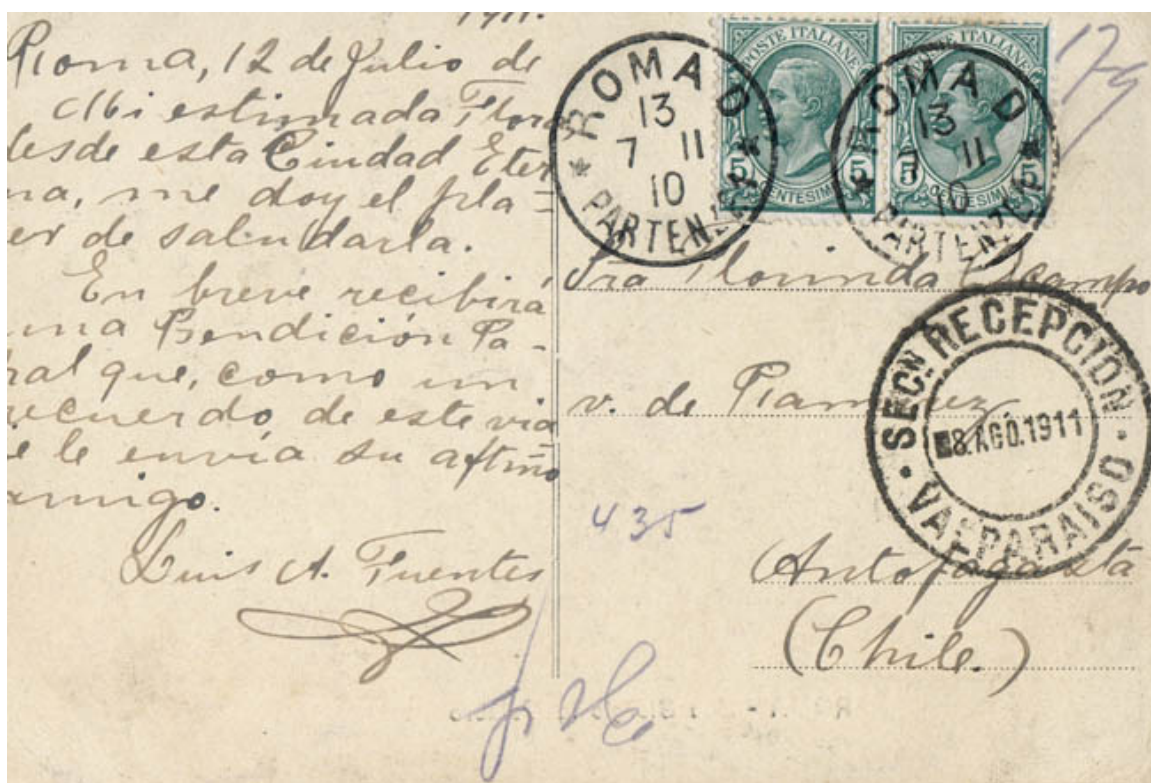 1911.
Roma, 12 de Julio de
Mi estimada Flora
desde esta Ciudad Eter
na, me doy el pla-
er de saludarla.
En breve recibirá
una Bendición Pa-
ral que, como un
recuerdo de este via
e le envía su aftmo
amigo.
Luis A. Fuentes
POSTE ITALIANE
5 CENTESIMI 5
POSTE ITALIANE
5 CENTESIMI 5
ROMA D
13
7 11
10
PARTENZA
ROMA D
13
7 11
10
PARTENZA
79
Sra Florinda Ocampo
v. de Ramirez
SECN. RECEPCIÓN
8. AGO. 1911
VALPARAISO
435
Antofagasta
(Chile.)